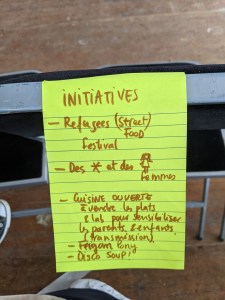 INITIATIVES
- Refugees (Street)
FOOD
Festival
- Des * et des
Femmes
- CUISINE OUVERTE
à vendre les plats
& lab pour sensibiliser
les parents & enfants
(transmission)
- Pony
- DISCO SOUP